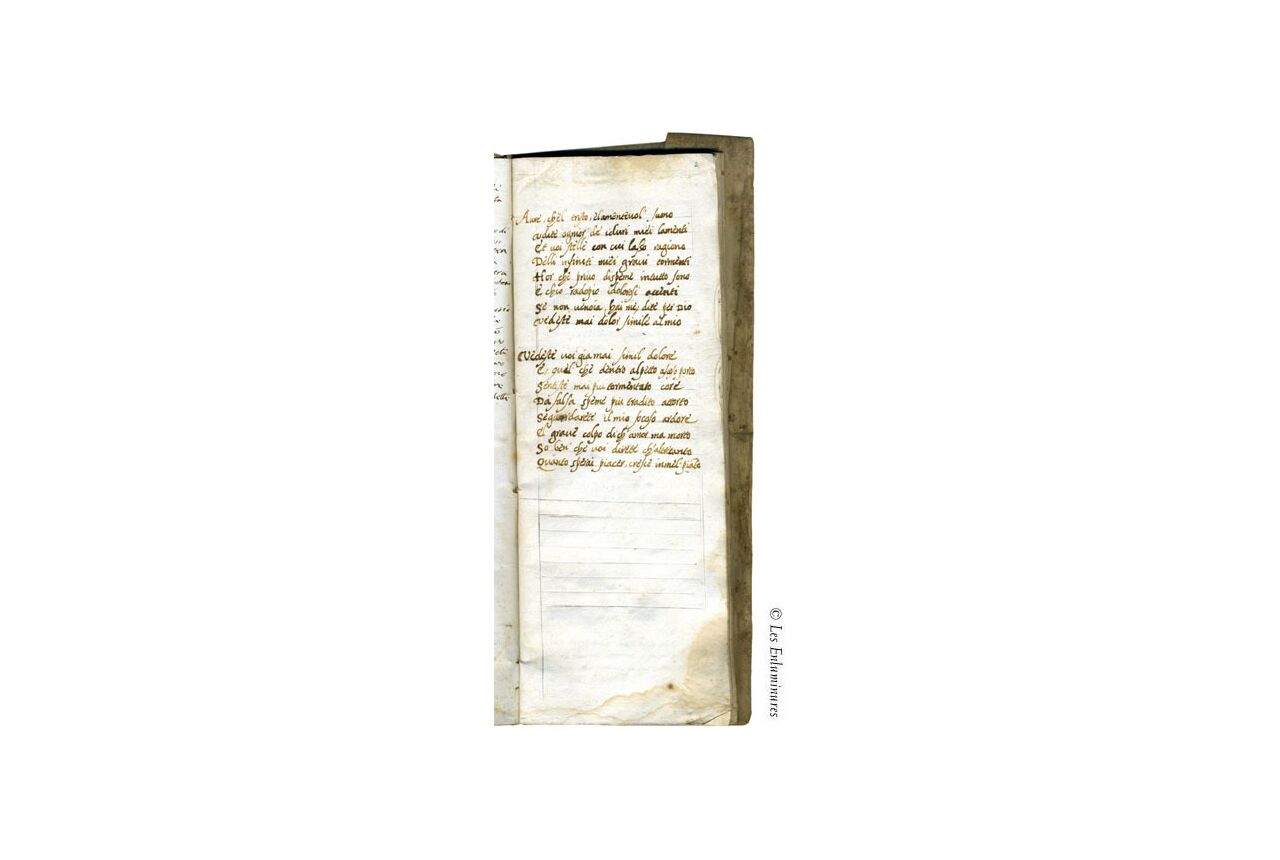 2
Aure, ch'el tristo, e lamenteuol' suono
Vdite ogn'hor de i duri miei lamenti
Et uoi stelle con cui lasso ragiono
Delli infiniti miei graui tormenti
Hor che priuo di speme in tutto sono
E ch'io radopio i dolorosi accenti
Se non u'e noia, hai me, dite per Dio
Vedeste mai dolor simile al mio
Vedeste uoi gia mai simil dolore
E quel che dentro al petto ascoso porto
Sentiste mai piu tormentato core
Da falsa speme piu tradito a torto
Se guardarete il mio focoso ardore
El graue colpo di ch'amor m'a morto
So ben che uoi direte ch'altretanto
Quanto sperai piacer, cresce in me'l pianto
© Les Enluminures